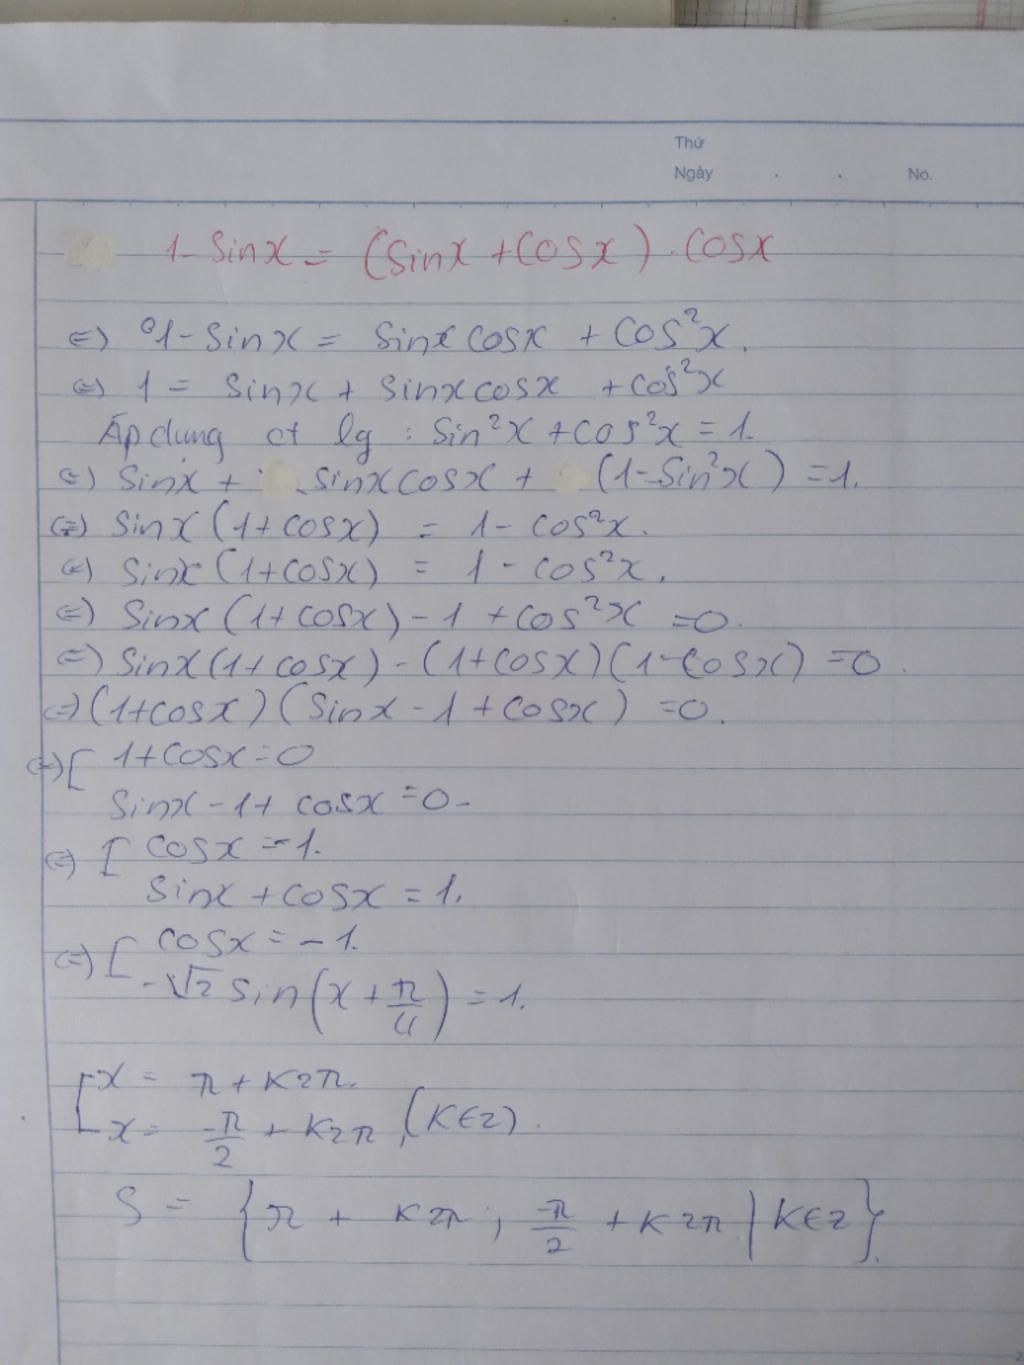 Thứ
Ngày . . No.
1 - Sinx = (Sinx + Cosx) . Cosx
⇔) 1 - Sinx = Sinx cosx + Cos²x.
⇔) 1 = Sinx + Sinx cosx + cos²x
Áp dụng ct lg : Sin²x + cos²x = 1.
⇔) Sinx + sinx cosx + (1 - Sin²x) = 1.
⇔) Sinx (1 + cosx) = 1 - cos²x.
⇔) Sinx (1 + cosx) = 1 - cos²x.
⇔) Sinx (1 + cosx) - 1 + cos²x = 0.
⇔) Sinx (1 + cosx) - (1 + cosx)(1 - cosx) = 0.
⇔) (1 + cosx)(Sinx - 1 + cosx) = 0.
⇔) [ 1 + cosx = 0
Sinx - 1 + cosx = 0.
⇔) [ cosx = -1.
Sinx + cosx = 1.
⇔) [ cosx = -1.
-√2 sin(x + π/4) = 1.
[ x = π + k2π.
x = -π/2 + k2π, (k∈z).
S = {π + k2π ; -π/2 + k2π | k∈z}.